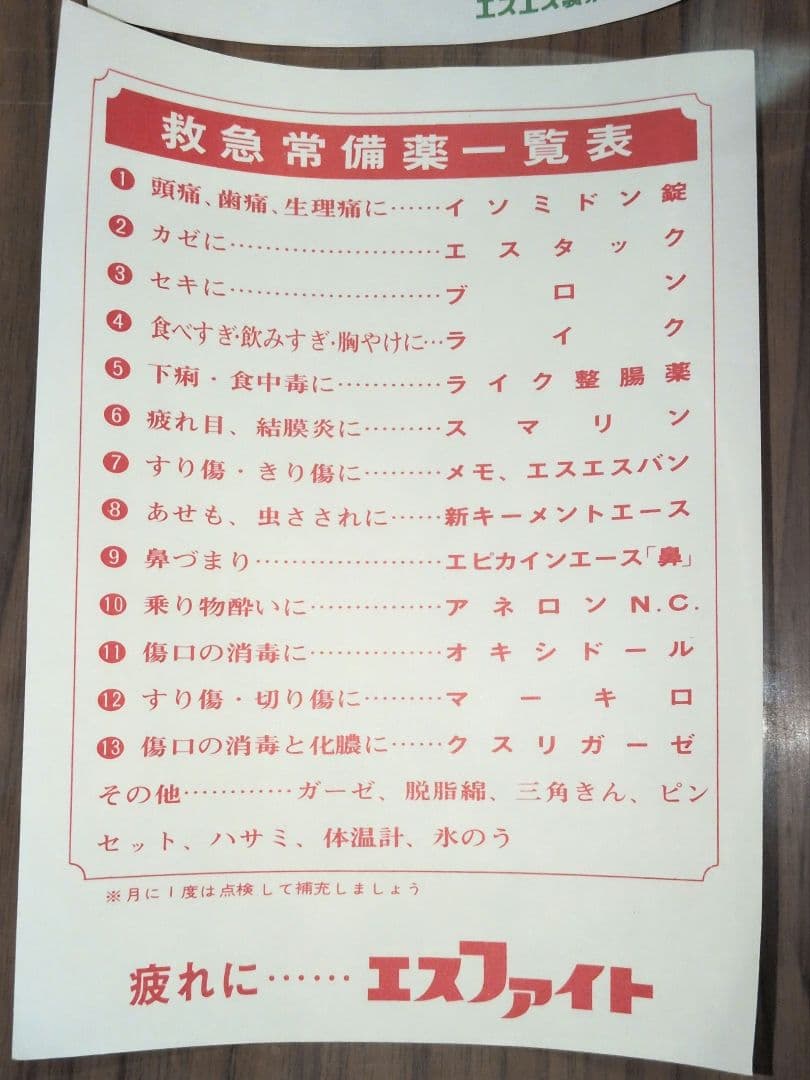 エスエス製
救急常備薬一覧表
❶ 頭痛、歯痛、生理痛に……イソミドン錠
❷ カゼに……………………エスタック
❸ セキに……………………ブロン
❹ 食べすぎ・飲みすぎ・胸やけに…ライク
❺ 下痢・食中毒に…………ライク整腸薬
❻ 疲れ目、結膜炎に………スマリン
❼ すり傷・きり傷に………メモ、エスエスバン
❽ あせも、虫さされに……新キーメントエース
❾ 鼻づまり…………………エピカインエース「鼻」
❿ 乗り物酔いに……………アネロンN.C.
⓫ 傷口の消毒に……………オキシドール
⓬ すり傷・切り傷に………マーキロ
⓭ 傷口の消毒と化膿に……クスリガーゼ
その他…………ガーゼ、脱脂綿、三角きん、ピン
セット、ハサミ、体温計、氷のう
※月に1度は点検して補充しましょう
疲れに……エスファイト